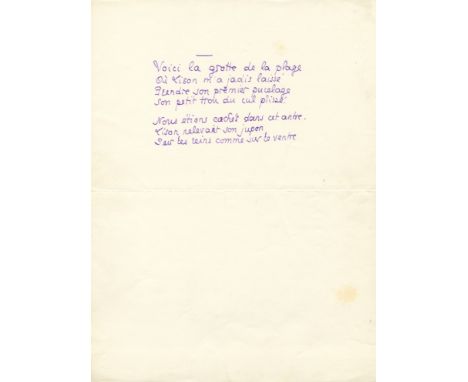 Voici la grotte de la plage
Où Lison m'a jadis laissé
Prendre son premier pucelage
Son petit trou du cul plissé.
Nous étions cachés dans cet antre.
Lison relevait son jupon
Sur les reins comme sur le ventre